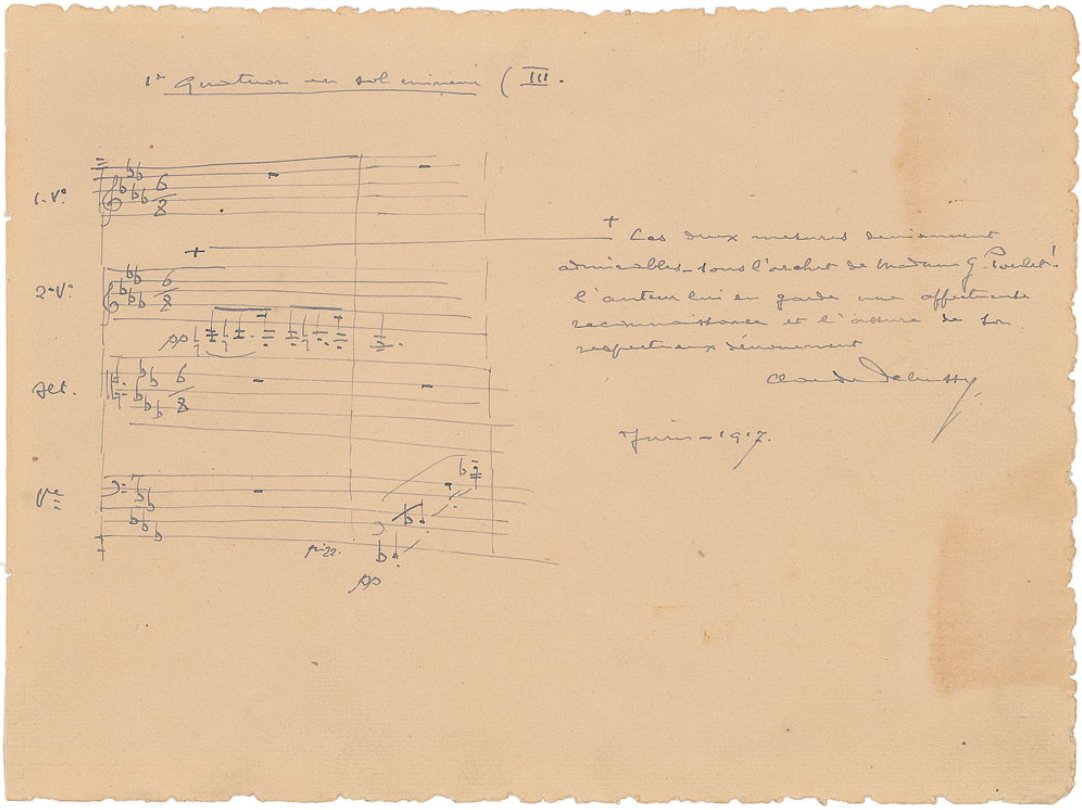 1er Quatuor en sol mineur ( III.
1. Vo.
6
8
+
2e Vo.
6
8
pp
Alt.
6
8
Vlle
p. 22.
pp
+ Ces deux mesures deviennent
admirables sous l'archet de Madame G. Poulet!
l'auteur lui en garde une affectueuse
reconnaissance et l'assure de son
respectueux dévouement
Claude Debussy
Juin - 1917.